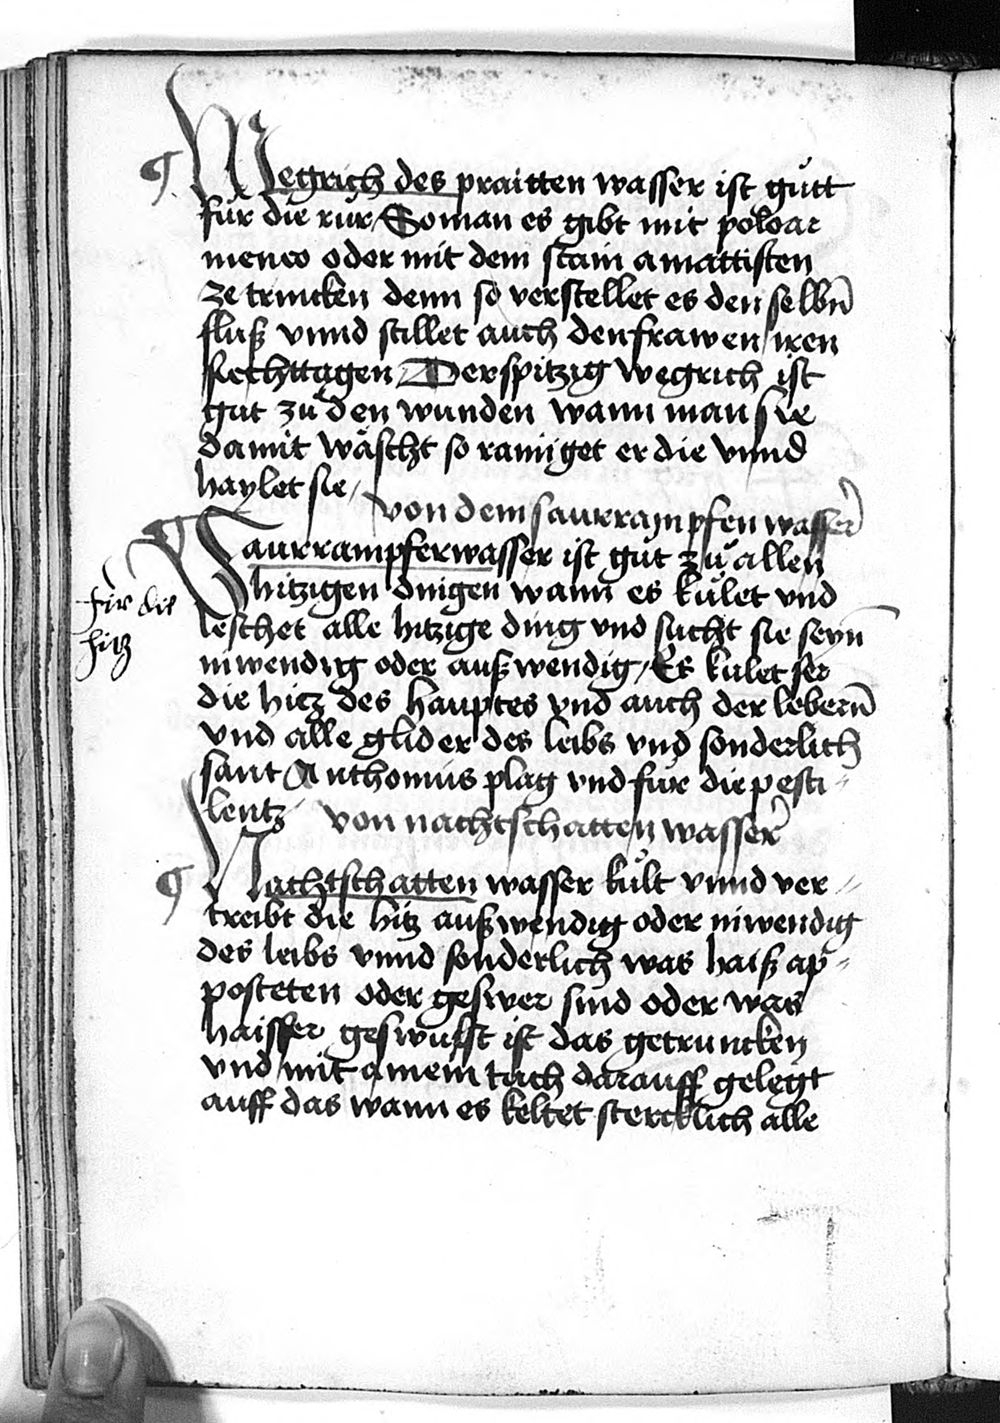 ¶ Wegrich des praitten wasser ist gůtt
für die růr / So man es gibt mit poloar
meneo oder mit dem stain amattisten
ze trincken denn so verstellet es den selbñ
fluß vnnd stillet auch den frawen iren
siechttagen / Der spitzig wegrich ist
gůt zů den wunden wann man sie
damit wäscht so rainiget er die vnnd
haylet sie /
von dem saurrampfen wasser
¶ Saurrampferwasser ist gůt zů allen
hitzigen dingen wann es kůlet vnd
leschet alle hitzige ding vnd sücht sie seyñ
inwendig oder außwendig / Es kůlet ser
die hicz des hauptes vnd auch der leberñ
vnd alle glider des leibs vnd sonderlich
sant Anthonius plag vnd für die pesti=
lentz
für die
hitz
von nachtschatten wasser
¶ Nachtschatten wasser kůlt vnnd ver=
treibt die hitz außwendig oder inwendig
des leibs vnnd sonderlich was haiß ap=
posteten oder geswer sind oder was
haisser geswulst ist das getruncken
vnd mit ainem tuch darauff gelegt
auff das wann es keltet stercklich alle